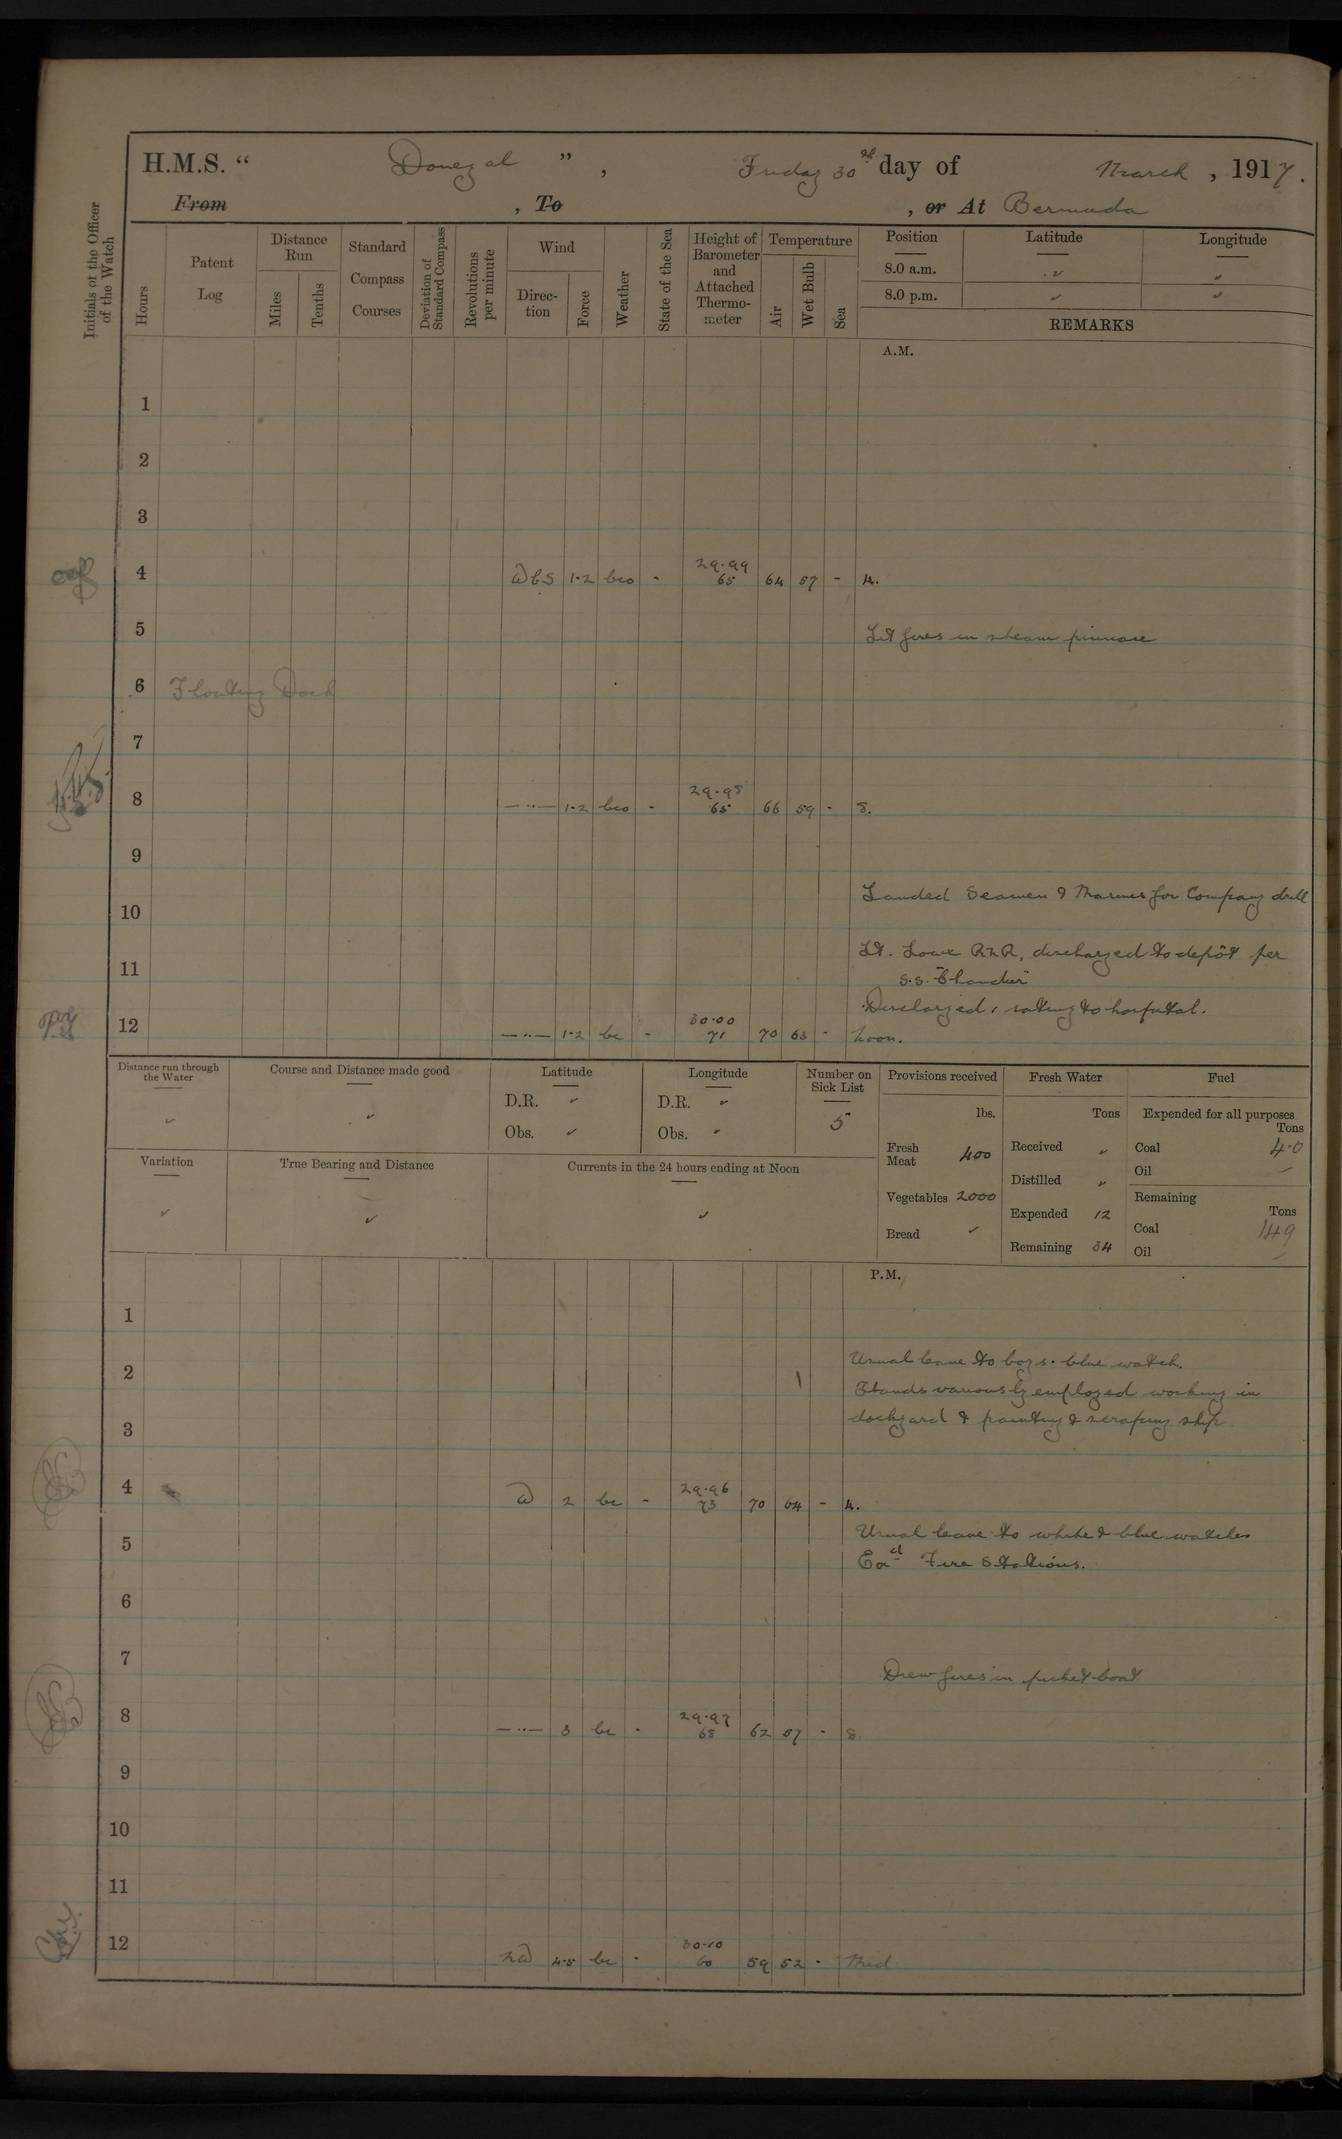 H.M.S. “ Donegal ” , Friday 30th day of March , 1917.
From , To , or At Bermuda
Initials of the Officer of the Watch
Hours
Patent Log
Distance Run
Miles
Tenths
Standard Compass Courses
Deviation of Standard Compass
Revolutions per minute
Wind
Direction
Force
Weather
State of the Sea
Height of Barometer and Attached Thermometer
Temperature
Air
Wet Bulb
Sea
Position Latitude Longitude
8.0 a.m.
8.0 p.m.
REMARKS
A.M.
1
2
3
4 WbS 1·2 bco - 29·99 65 64 57 - 4.
5 Lit fires in steam pinnace
6 Floating Dock
7
8 —··— 1·2 bco - 29·98 65 66 59 - 8.
9
10 Landed Seamen & Marines for Company drill
11 Lt. Lowe RNR, discharged to depôt per
s.s.
Discharged 1 rating to hospital.
12 —··— 1·2 bc - 30·00 71 70 63 - Noon.
Distance run through the Water
Course and Distance made good
Latitude
D.R.
Obs.
Longitude
D.R.
Obs.
Number on Sick List
5
Variation
True Bearing and Distance
Currents in the 24 hours ending at Noon
Provisions received
lbs.
Fresh Meat 400
Vegetables 2000
Bread
Fresh Water
Tons
Received
Distilled
Expended 12
Remaining 34
Fuel
Expended for all purposes
Tons
Coal 4·0
Oil
Remaining
Tons
Coal 149
Oil
P.M.
1
2 Usual leave to boys. blue watch.
Hands variously employed working in
3 dockyard & painting & scraping ship
4 W 2 bc - 29·96 73 70 64 - 4.
5 Usual leave to white & blue watches
Exd Fire Stations.
6
7 Drew fires in picket boat
8 —··— 3 bc - 29·97 68 62 57 - 8.
9
10
11
12 NW 4·5 bc - 30·10 60 59 52 - Mid